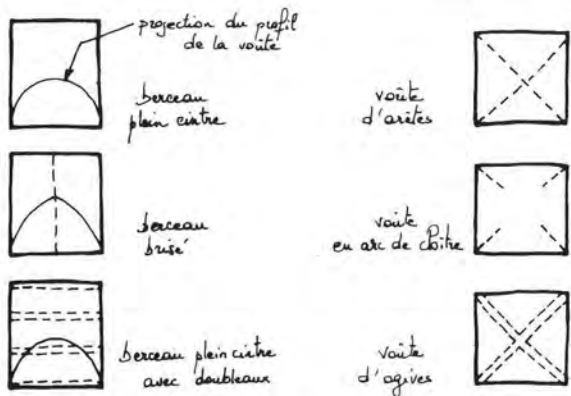 projection du profil
de la voûte
berceau
plein cintre
berceau
brisé
berceau plein cintre
avec doubleaux
voûte
d'arêtes
voûte
en arc de cloître
voûte
d'ogives